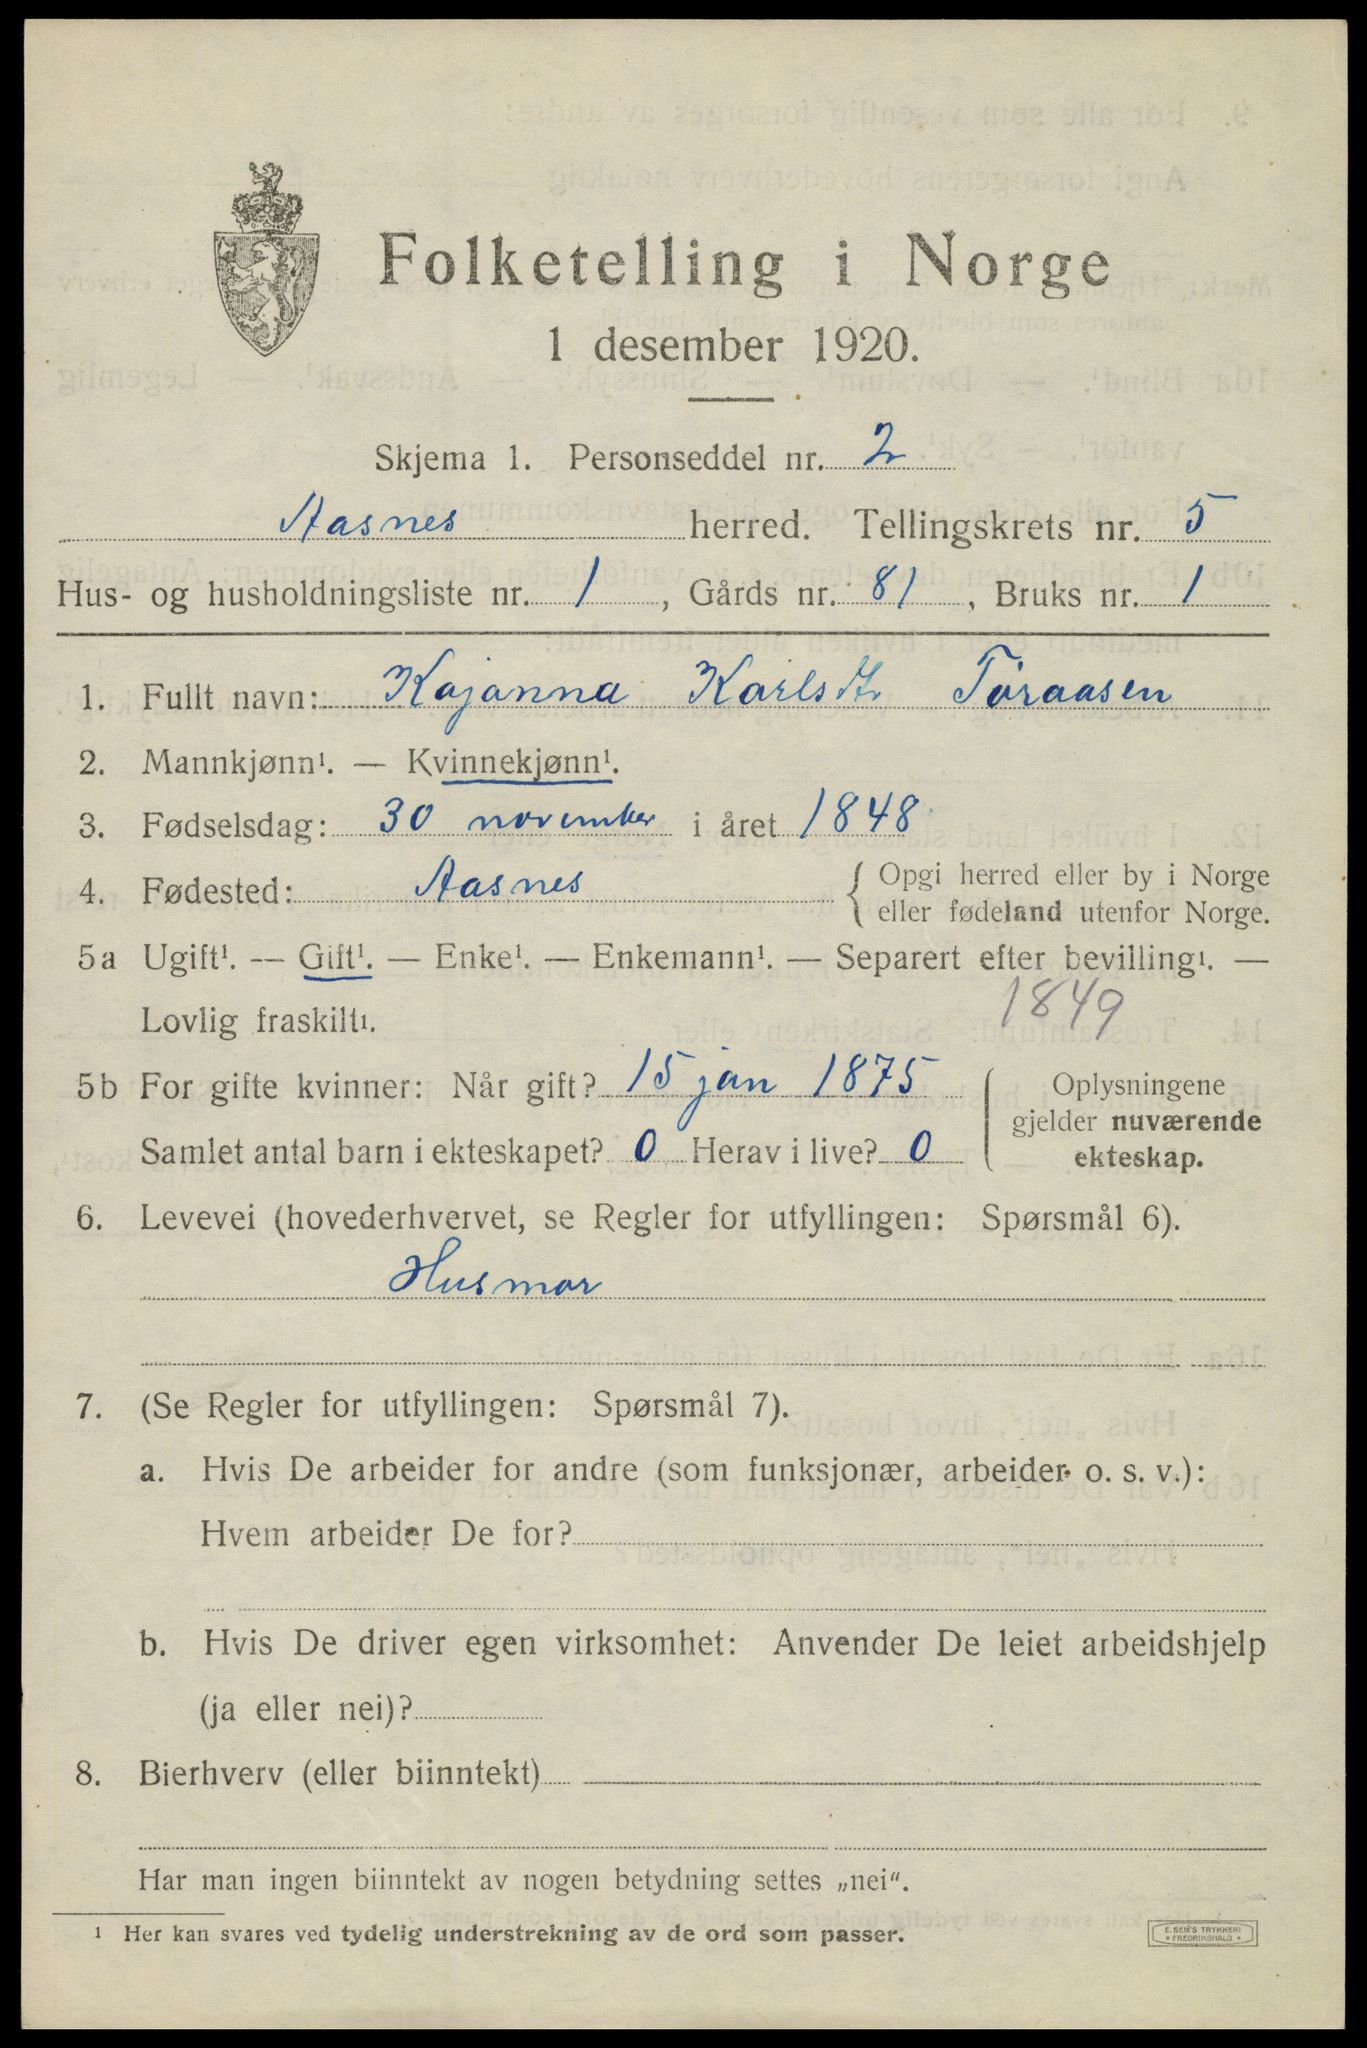 Folketelling i Norge
1 desember 1920.
Skjema 1. Personseddel nr. 2
Aasnes herred. Tellingskrets nr. 5
Hus- og husholdningsliste nr. 1, Gårds nr. 81, Bruks nr. 1
1. Fullt navn: Kajanna Karlsdtr Töraasen
2. Mannkjønn¹. — Kvinnekjønn¹.
3. Fødselsdag: 30 november i året 1848
4. Fødested: Aasnes { Opgi herred eller by i Norge
eller fødeland utenfor Norge.
5a Ugift¹. — Gift¹. — Enke¹. — Enkemann¹. — Separert efter bevilling¹. —
Lovlig fraskilt¹.
1849
5b For gifte kvinner: Når gift? 15 jan 1875
Samlet antal barn i ekteskapet? 0 Herav i live? 0
Oplysningene
gjelder nuværende
ekteskap.
6. Levevei (hovederhvervet, se Regler for utfyllingen: Spørsmål 6).
Husmor
7. (Se Regler for utfyllingen: Spørsmål 7).
a. Hvis De arbeider for andre (som funksjonær, arbeider o. s. v.):
Hvem arbeider De for?
b. Hvis De driver egen virksomhet: Anvender De leiet arbeidshjelp
(ja eller nei)?
8. Bierhverv (eller biinntekt)
Har man ingen biinntekt av nogen betydning settes „nei“.
¹ Her kan svares ved tydelig understrekning av de ord som passer.
E. SEM'S TRYKKERI
* FREDRIKSHALD *